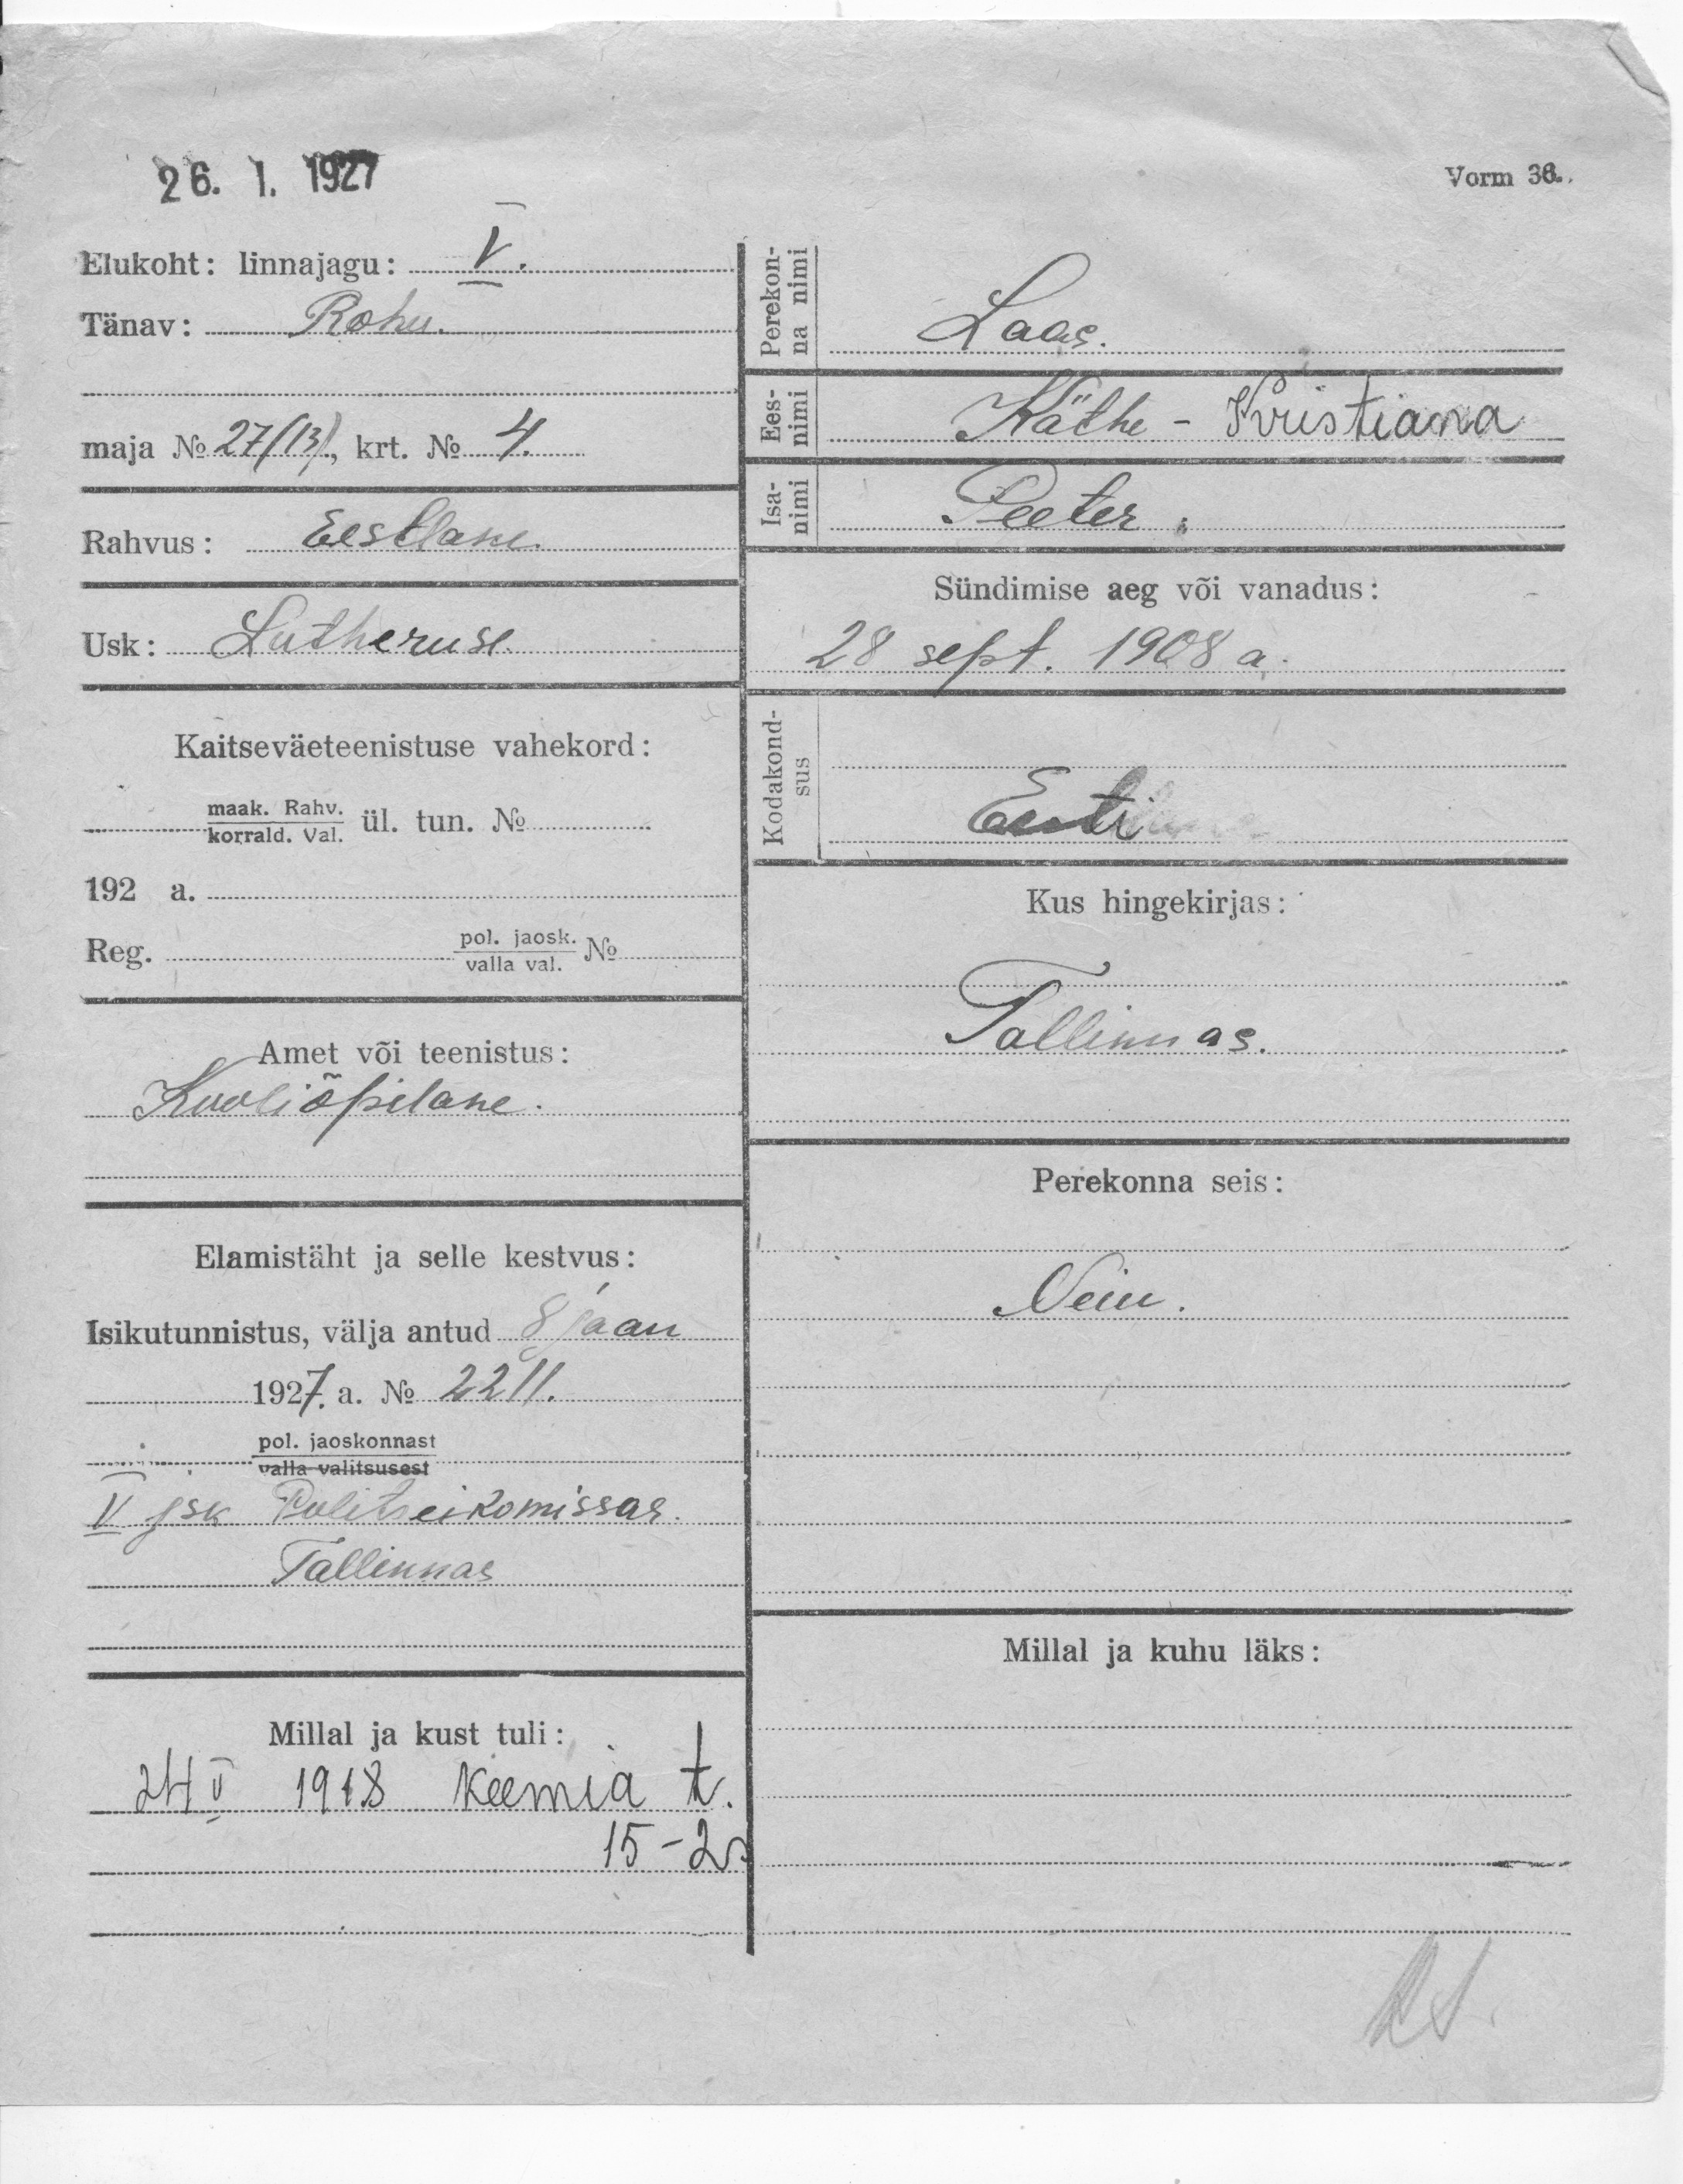 26. 1. 1927
Vorm 36.
Elukoht: linnajagu: V.
Tänav: Rohu.
maja № 27/(13), krt. № 4.
Rahvus: Eestlane.
Usk: Lutheruse.
Kaitseväeteenistuse vahekord:
maak. Rahv.
korrald. Val. ül. tun. №
192 a.
Reg. pol. jaosk. №
valla val.
Amet või teenistus:
Kooliõpilane.
Elamistäht ja selle kestvus:
Isikutunnistus, välja antud 8 jaan
1927. a. № 2211.
pol. jaoskonnast
valla valitsusest
V jsk Politseikomissar.
Tallinnas
Millal ja kust tuli:
24 V 1918 Keemia t.
15-2
Perekon-
na nimi
Laas.
Ees-
nimi
Käthe - Kristiana
Isa-
nimi
Peeter.
Sündimise aeg või vanadus:
28 sept. 1908 a.
Kodakond-
sus
Eesti
Kus hingekirjas:
Tallinnas.
Perekonna seis:
Neiu.
Millal ja kuhu läks: